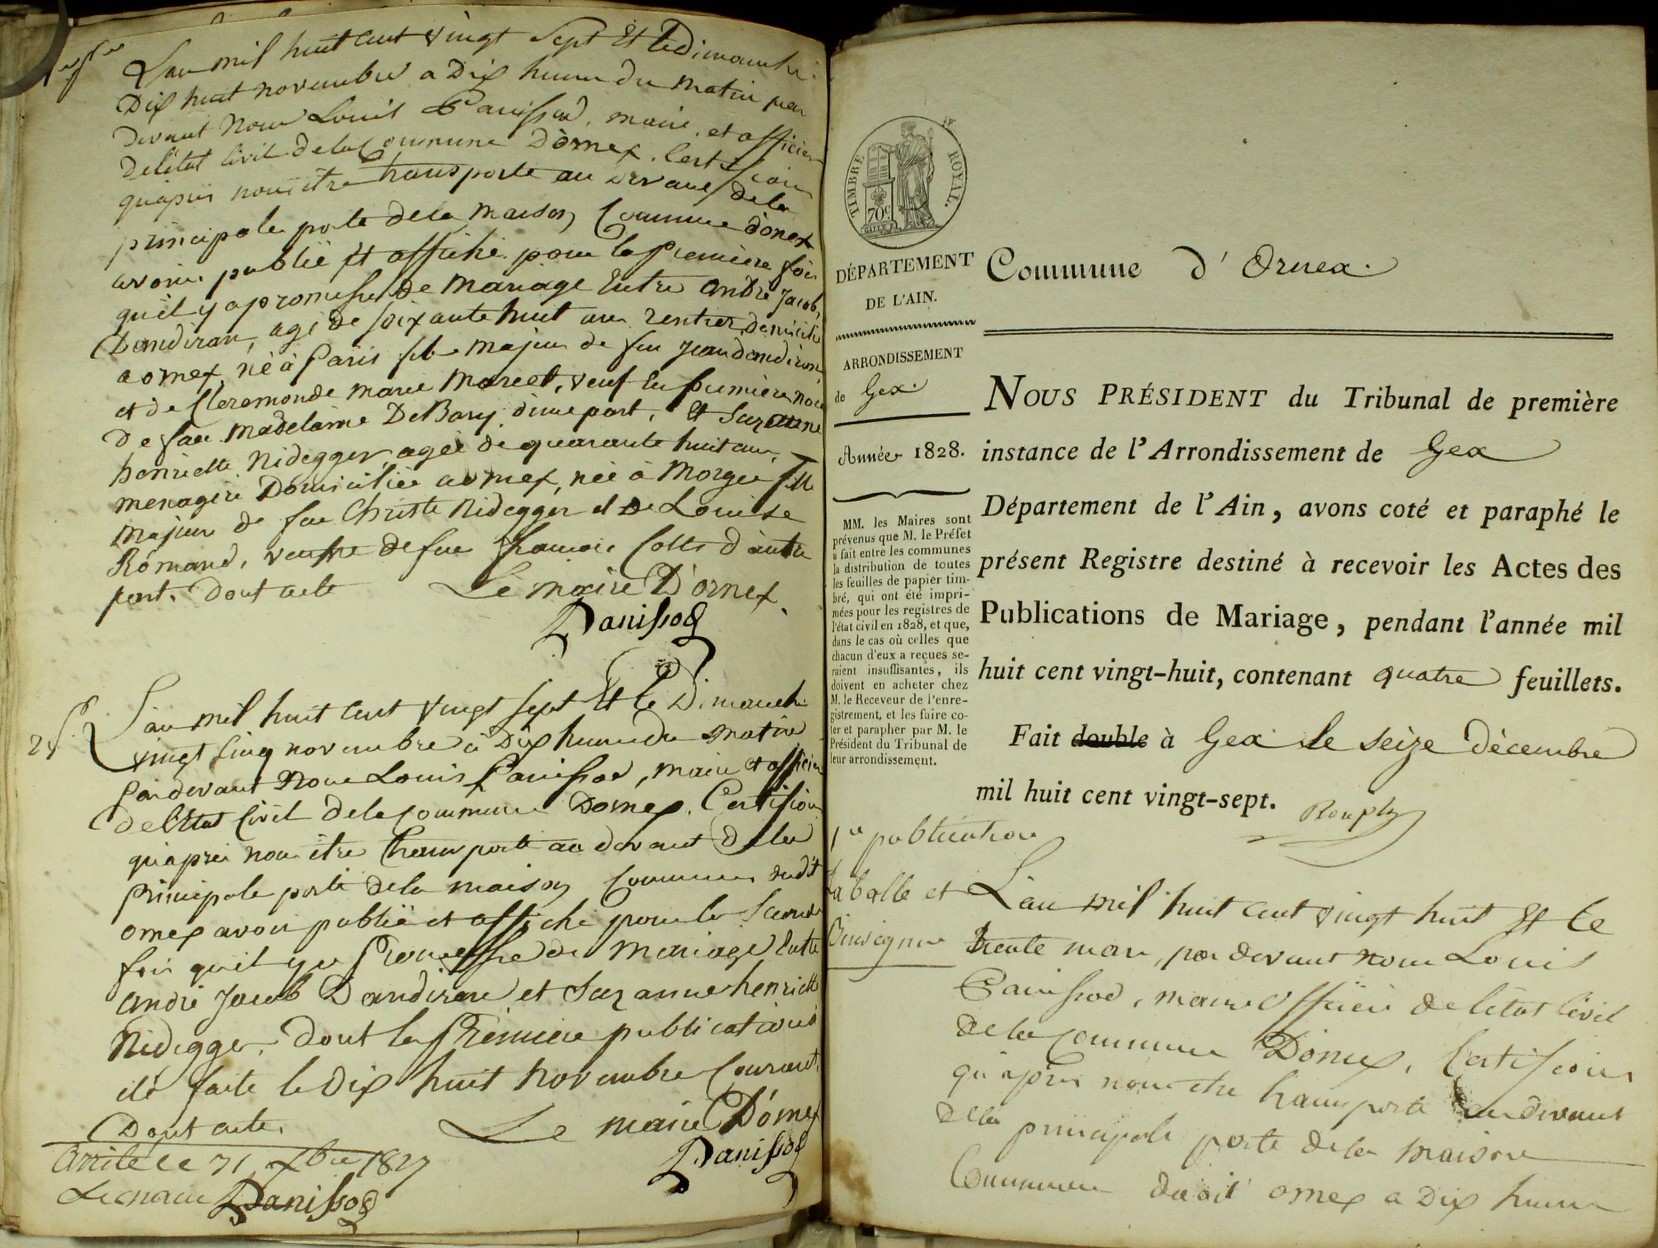 1re pp
L'an mil huit cent vingt sept Et le Dimanche
Dix huit novembre a Dix heures du matin par
devant Nous Louis Panissod, maire, et officier
De l'état Civil de la Commune D'ornex. Certifions
qu'après nous être transporté au devant de la
principale porte de la maison Commune d'ornex
avons publié Et affiché pour la Première fois
qu'il y a promesse de Mariage Entre André Jacob,
Dandiran, agé de soixante huit ans rentier, domicilié
a ornex, né à Paris fils majeur de feu Jean dandiran,
et de Cleremonde Marie Marcet, veuf En première noce
De feue Madelaine De Bary d'une part, Et Suzanne
henriette Nidegger, agée de quarante huit ans,
menagère Domiciliée a ornex, née à Morges fille
majeure de feu Christe Nidegger et De Louise
Romand, veuve de feu francois Colts d'autre
part. Dont acte Le maire D'ornex.
Panissod
2e p.
L'an mil huit cent vingt sept Et le Dimanche
vingt Cinq novembre à Dix heures du matin
Pardevant Nous Louis Panissod, maire et officier
de l'Etat Civil de la Commune D'ornex. Certifions
qu'après nous être transporté au devant De la
principale porte de la maison Commune dudit
ornex avons publié et affiché pour la Seconde
fois qu'il y a Promesse de Mariage Entre
André Jacob Dandiran et Suzanne henriette
Nidegger. Dont la Première publication a
été faite le Dix huit Novembre Courant.
Dont acte.
Le maire D'ornex
Panissod
Arrêté le 31 Xbre 1827
Le maire Panissod
TIMBRE ROYAL.
70c
DÉPARTEMENT
DE L'AIN.
Commune d'Ornex.
ARRONDISSEMENT
de Gex.
Année 1828.
MM. les Maires sont
prévenus que M. le Préfet
a fait entre les communes
la distribution de toutes
les feuilles de papier tim-
bré, qui ont été impri-
mées pour les registres de
l'état civil en 1828, et que,
dans le cas où celles que
chacun d'eux a reçues se-
raient insuffisantes, ils
doivent en acheter chez
M. le Receveur de l'enre-
gistrement, et les faire co-
ter et parapher par M. le
Président du Tribunal de
leur arrondissement.
NOUS PRÉSIDENT du Tribunal de première
instance de l'Arrondissement de Gex
Département de l'Ain, avons coté et paraphé le
présent Registre destiné à recevoir les Actes des
Publications de Mariage, pendant l'année mil
huit cent vingt-huit, contenant quatre feuillets.
Fait double à Gex le seize décembre
mil huit cent vingt-sept.
1re publication
Laballe et
L'an mil huit cent vingt huit Et le
trente mars, par devant nous Louis
Panissod, maire officier de l'état Civil
de la Commune D'ornex, Certifions
qu'après nous être transporté au devant
de la principale porte de la maison
Commune dudit ornex a Dix heures